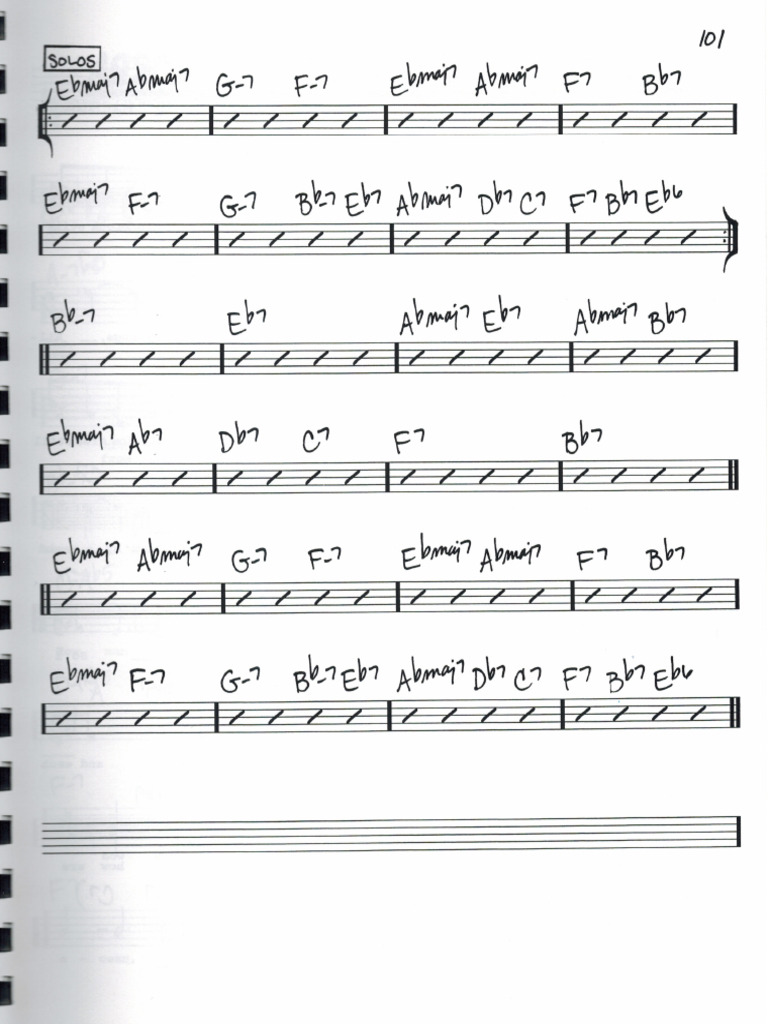 101
SOLOS
Ebmaj7 Abmaj7 G-7 F-7 Ebmaj7 Abmaj7 F7 Bb7
Ebmaj7 F-7 G-7 Bb-7 Eb7 Abmaj7 Db7 C7 F7 Bb7 Eb6
Bb-7 Eb7 Abmaj7 Eb7 Abmaj7 Bb7
Ebmaj7 Ab7 Db7 C7 F7 Bb7
Ebmaj7 Abmaj7 G-7 F-7 Ebmaj7 Abmaj7 F7 Bb7
Ebmaj7 F-7 G-7 Bb-7 Eb7 Abmaj7 Db7 C7 F7 Bb7 Eb6